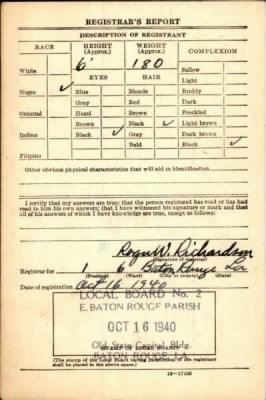 REGISTRAR'S REPORT
DESCRIPTION OF REGISTRANT
RACE HEIGHT (Approx.) WEIGHT (Approx.) COMPLEXION
White 6' 180 Sallow
EYES HAIR Light
Negro ✓ Blue Blonde Ruddy
Gray Red Dark
Oriental Hazel Brown Freckled
Brown Black ✓ Light brown
Indian Black ✓ Gray Dark brown
Bald Black ✓
Filipino
Other obvious physical characteristics that will aid in identification
I certify that my answers are true; that the person registered has read or has had
read to him his own answers; that I have witnessed his signature or mark and that
all of his answers of which I have knowledge are true, except as follows:
Roger W. Richardson
(Signature of registrar)
Registrar for 1 6 Baton Rouge La
(Precinct) (Ward) (City or county) (State)
Date of registration Oct 16 1940
LOCAL BOARD No. 2
E. BATON ROUGE PARISH
OCT 16 1940
Old State Capitol Bldg.
(STAMP OF LOCAL BOARD)
BATON ROUGE, LA.
(The stamp of the Local Board having jurisdiction of the registrant
shall be placed in the above space.)